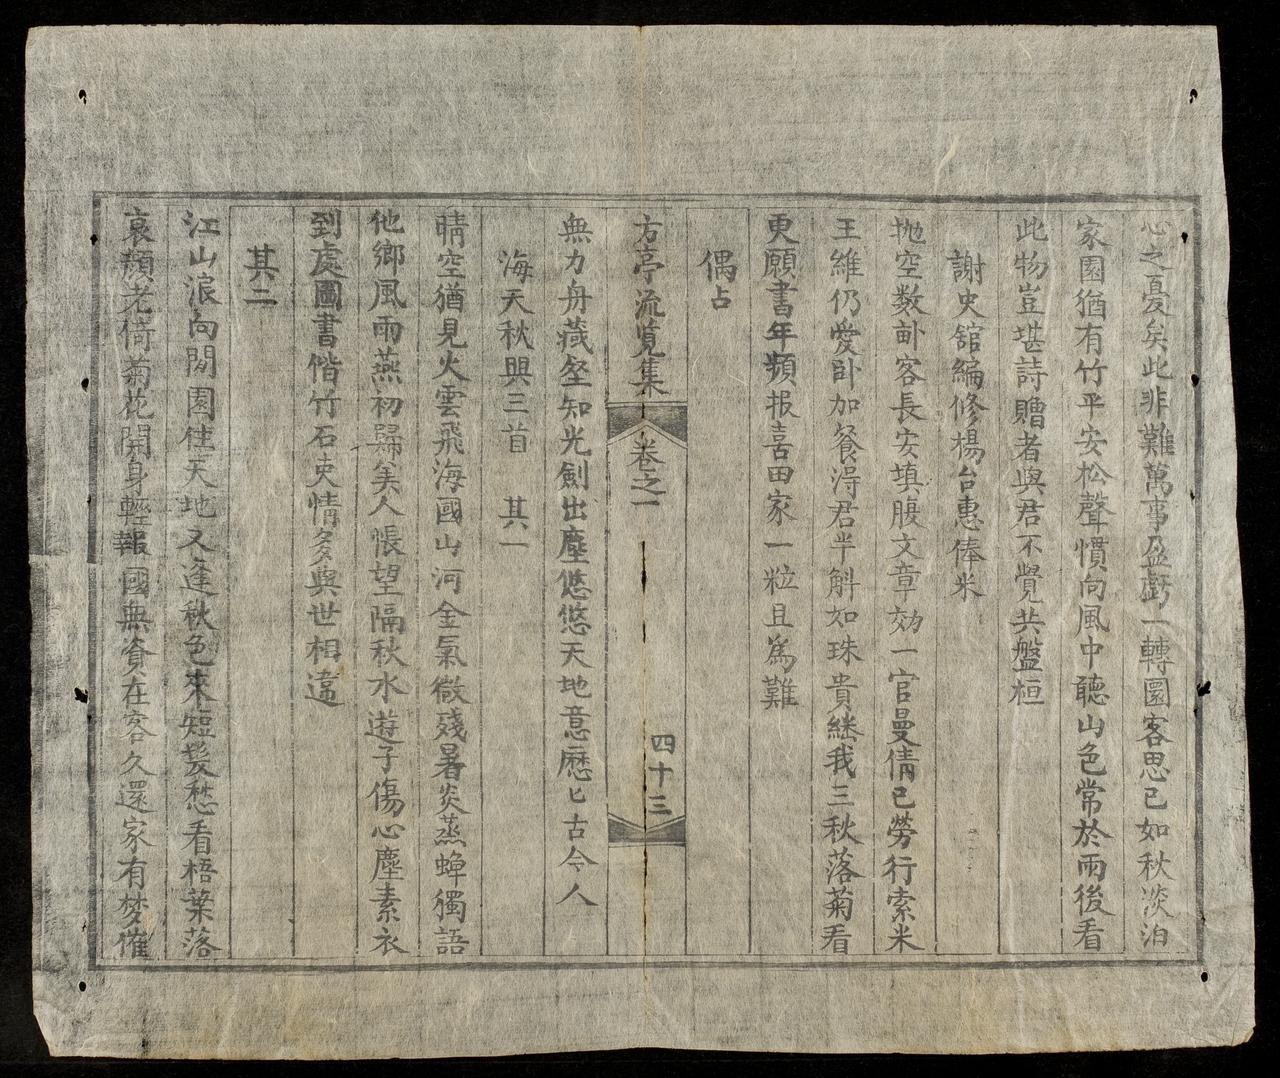 心之憂矣此非難萬事盈虧一轉圜客思已如秋淡泊
家園猶有竹平安松聲慣向風中聽山色常於雨後看
此物豈堪詩贈者與君不覺共盤桓
謝史舘編修楊台惠俸米
抛空数畝客長安填腹文章効一官曼倩已勞行索米
王維仍愛卧加餐淂君半斛如珠貴継我三秋落菊看
更願書年頻报喜田家一粒且為難
偶占
方亭流覧集 卷之一 四十三
無力舟藏壑知光劍出塵悠悠天地意歷匕古今人
海天秋興三首 其一
晴空猶見火雲飛海國山河金氣微殘暑炎蒸蟬獨語
他鄉風雨燕初歸美人悵望隔秋水遊子傷心塵素衣
到處圖書偕竹石吏情多與世相違
其二
江山浪向閒園徃天地又逢秋色來短髮愁看梧葉落
衰顏老倚菊花開身輕報國無資在客久還家有梦催